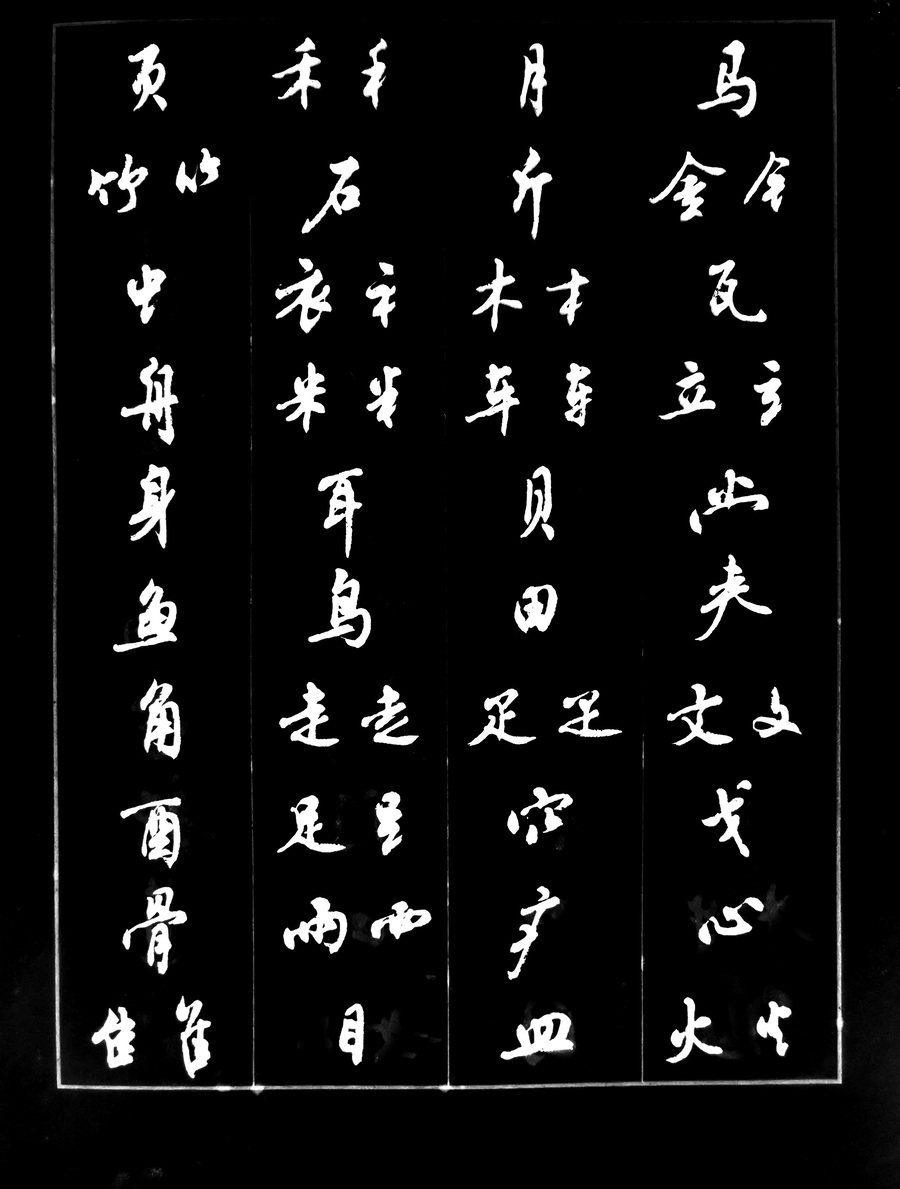 马金钅瓦立立夫文文戈心火火
月斤木木车车贝田疋疋穴疒皿
禾禾石衣衤米米耳鸟走走足𧾷雨雨目
页竹竹虫舟身鱼角酉骨隹隹